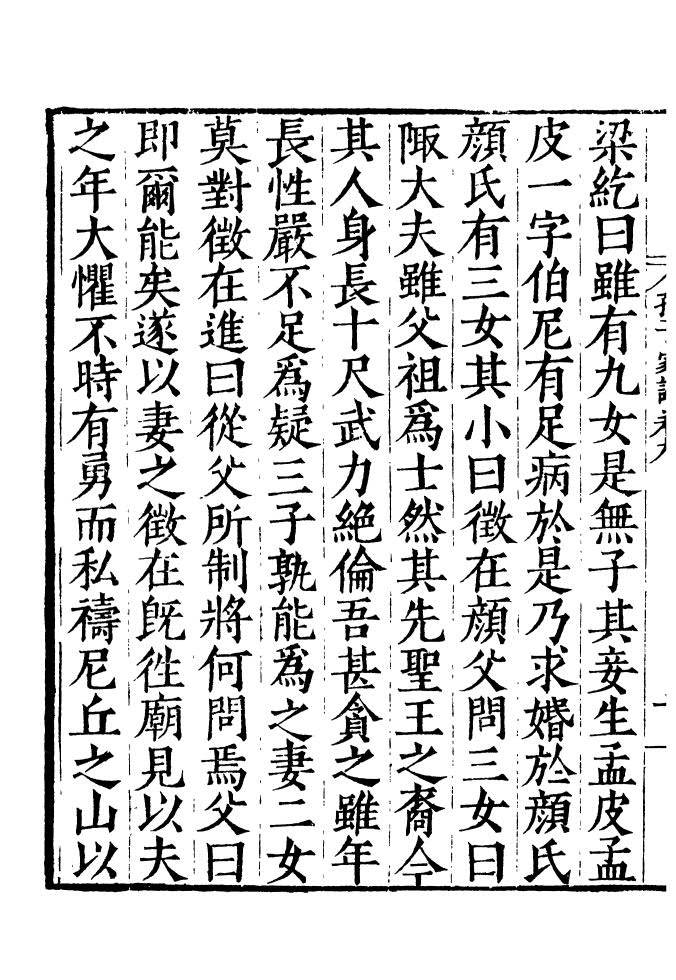 梁紇曰雖有九女是無子其妾生孟皮孟
皮一字伯尼有足病於是乃求婚於顔氏
顔氏有三女其小曰徵在顔父問三女曰
陬大夫雖父祖爲士然其先聖王之裔今
其人身長十尺武力絶倫吾甚貪之雖年
長性嚴不足爲疑三子孰能爲之妻二女
莫對徵在進曰從父所制將何問焉父曰
即爾能矣遂以妻之徵在既徃廟見以夫
之年大懼不時有勇而私禱尼丘之山以